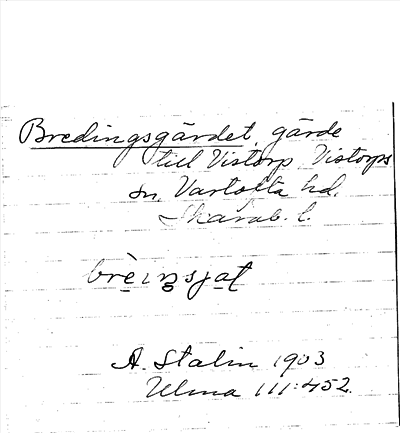 Bredingsgärdet, gärde
till Vistorp Vistorps
sn, Vartofta hd.
Skarab. l.
brèɪŋsjaṭ
A. Stalin 1903
Ulma 111:452.